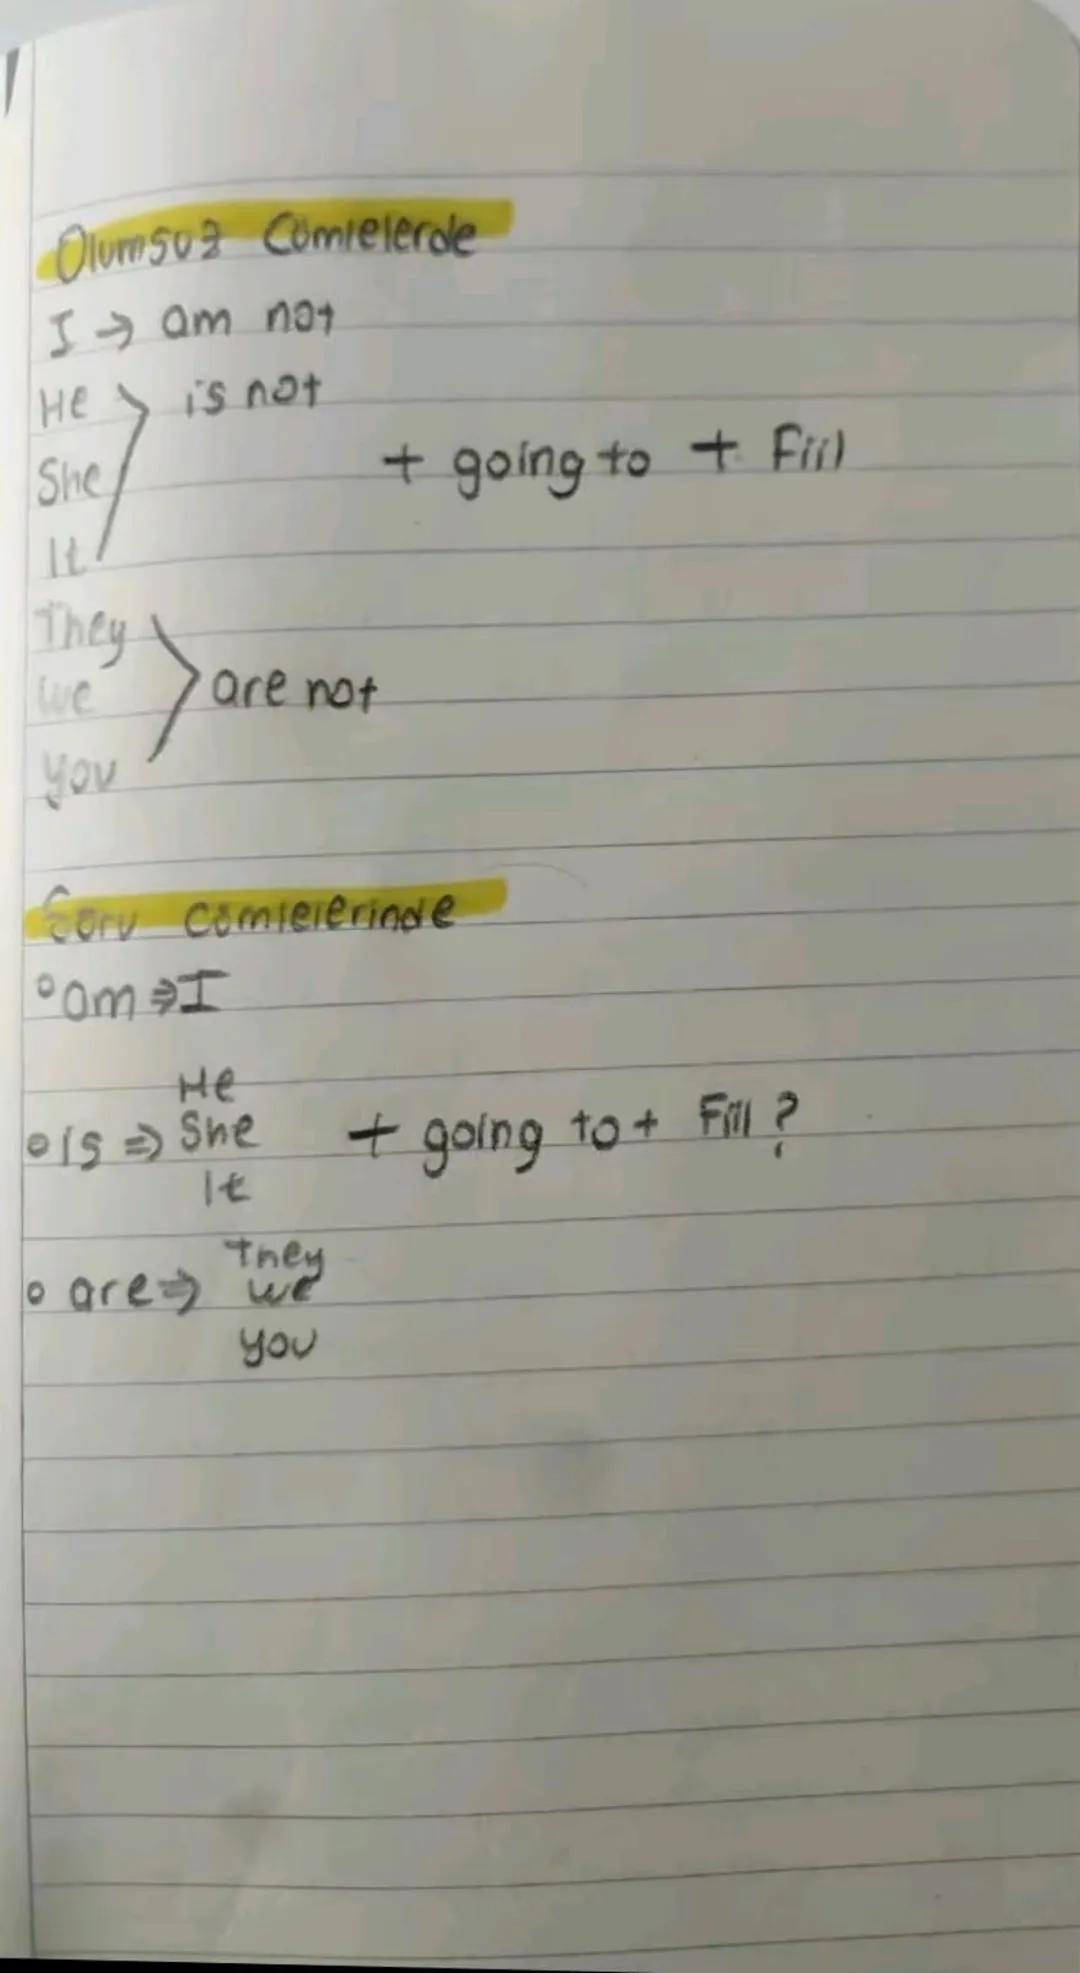 Olumsuz Cümlelerde
I → am not
He
is not
She
It
+ going to + Fiil
They
we
are not
you
Soru Cümlelerinde
am ⇒ I
He
is ⇒ She
It
+ going to + Fiil ?
They
are ⇒ we
you